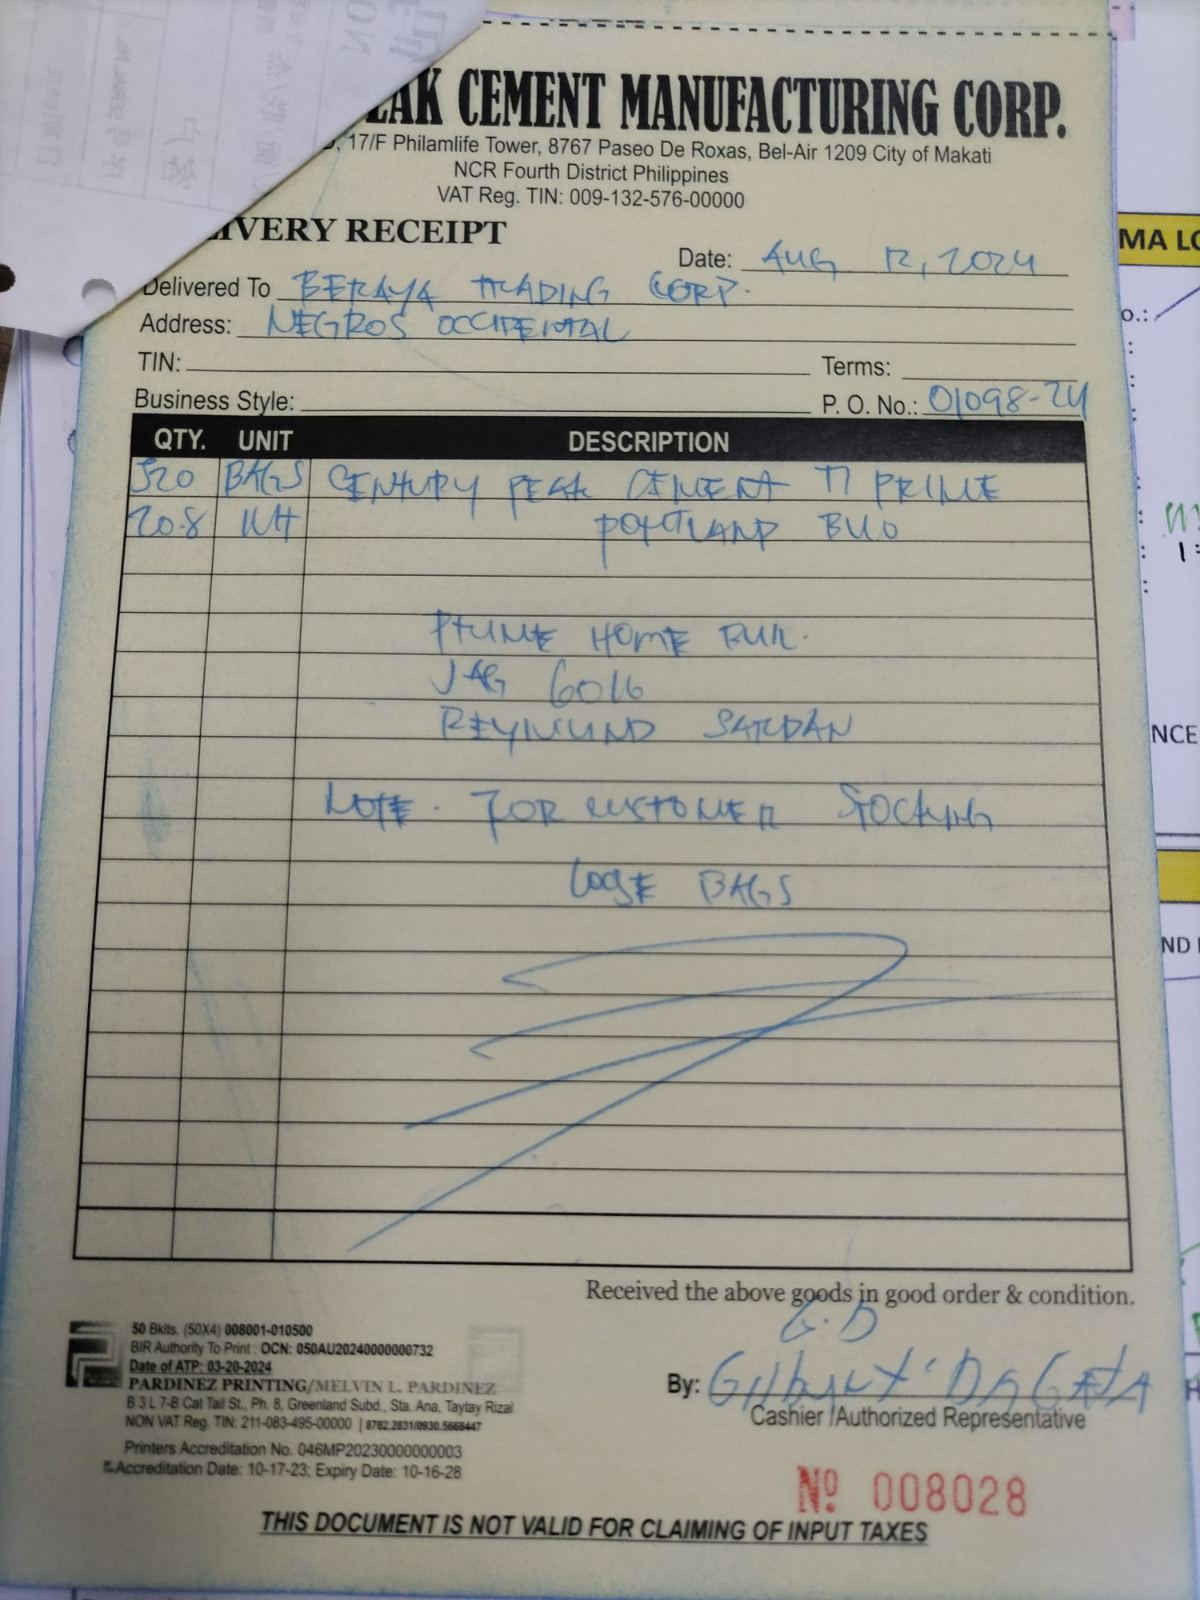 EAK CEMENT MANUFACTURING CORP.
17/F Philamlife Tower, 8767 Paseo De Roxas, Bel-Air 1209 City of Makati
NCR Fourth District Philippines
VAT Reg. TIN: 009-132-576-00000
IVERY RECEIPT
Date: AUG 12, 2024
Delivered To BERAYA TRADING CORP.
Address: NEGROS OCCIDENTAL
TIN: Terms:
Business Style: P. O. No.: 01098-24
QTY. UNIT DESCRIPTION
520 BAGS CENTURY PEAK CEMENT T1 PRIME
20.8 PORTLAND
PRIME HOME BUIL.
JAG 6016
REYMUND
NOTE. FOR CUSTOMER STOCKING
LOOSE BAGS
Received the above goods in good order & condition.
G.D
By:
Cashier /Authorized Representative
50 Bkits. (50X4) 008001-010500
BIR Authority To Print : OCN: 050AU20240000000732
Date of ATP: 03-20-2024
PARDINEZ PRINTING/MELVIN L. PARDINEZ
B 3 L 7-B Cat Tail St., Ph. 8, Greenland Subd., Sta. Ana, Taytay Rizal
NON VAT Reg. TIN: 211-083-495-00000 | 8782.2831/0930.5668447
Printers Accreditation No. 046MP20230000000003
Accreditation Date: 10-17-23; Expiry Date: 10-16-28
Nº 008028
THIS DOCUMENT IS NOT VALID FOR CLAIMING OF INPUT TAXES
MA LO
NCE
ND